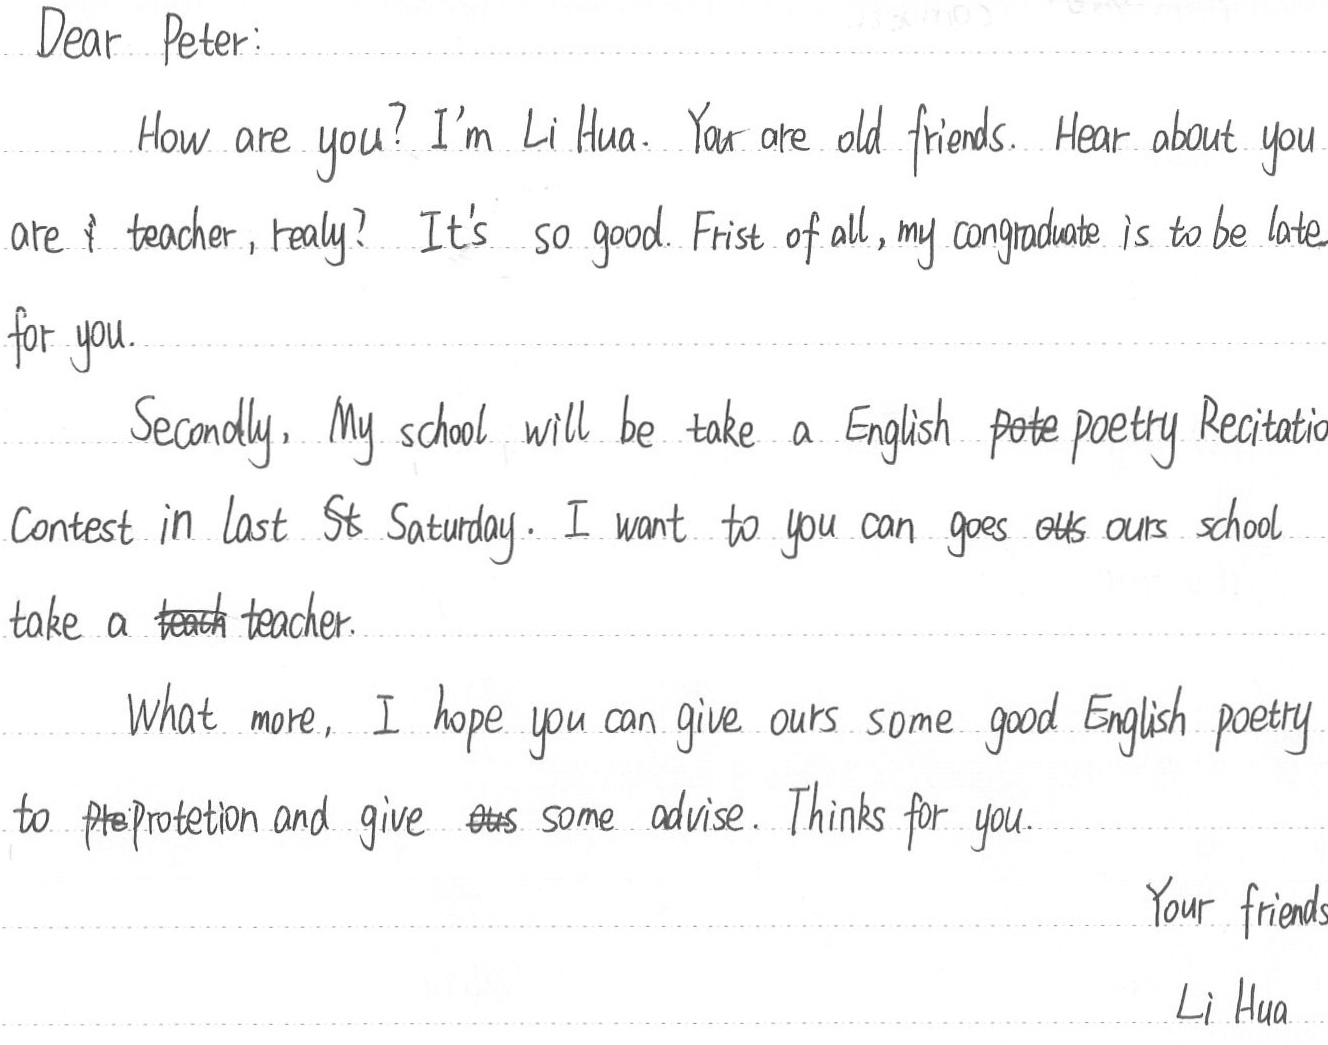 Dear Peter:
How are you? I'm Li Hua. Your are old friends. Hear about you
are teacher, realy? It's so good. Frist of all, my congraduate is to be late
for you.
Secondly, My school will be take a English pote poetry Recitatio
Contest in last St Saturday. I want to you can goes ous ours school
take a teach teacher.
What more, I hope you can give ours some good English poetry
to pre protetion and give ous some advise. Thinks for you.
Your friends
Li Hua